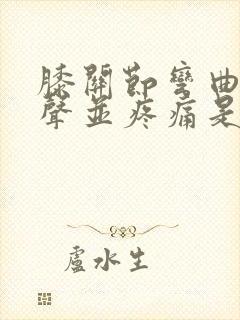 膝關節彎曲
聲並疼痛是
盧水生